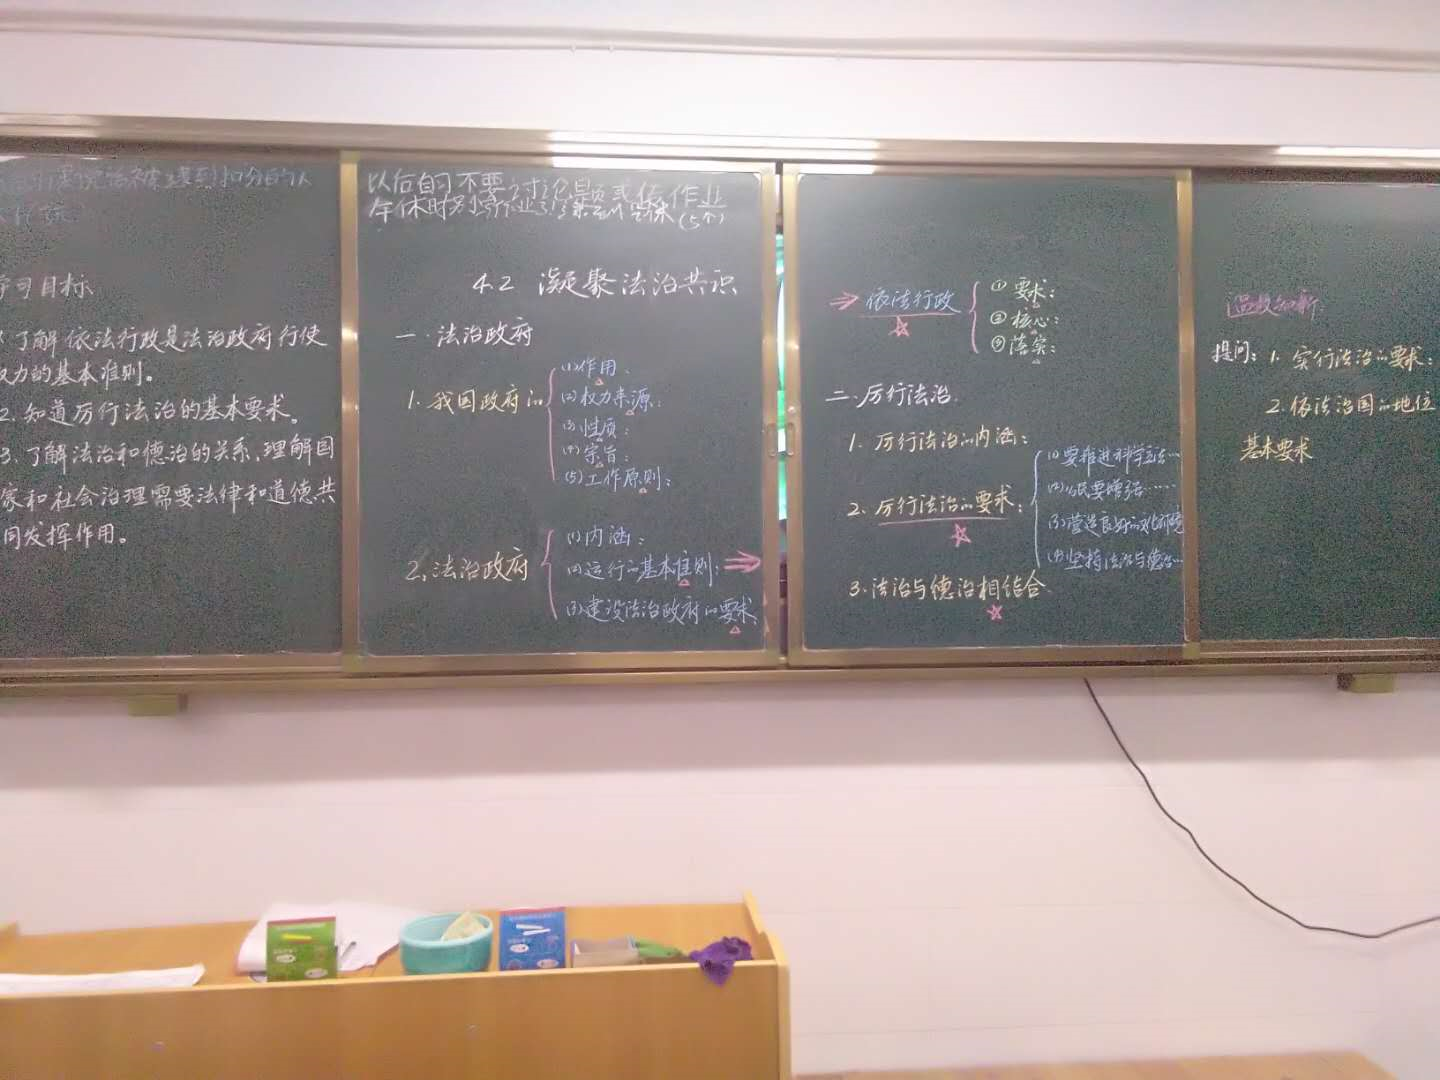 学习目标
1.了解依法行政是法治政府行使
权力的基本准则。
2.知道厉行法治的基本要求。
3.了解法治和德治的关系,理解国
家和社会治理需要法律和道德共
同发挥作用。
以后自习不要讨论题或依作业
(5个)
4.2 凝聚法治共识
一.法治政府
1.我国政府的
(1)作用:
(2)权力来源:
(3)性质:
(4)宗旨:
(5)工作原则:
2.法治政府
(1)内涵:
(2)运行的基本准则:
(3)建设法治政府的要求:
依法行政
①要求:
②核心:
③落实:
二.厉行法治.
1.厉行法治的内涵:
2.厉行法治的要求:
(1)要推进科学立法…
(2)公民要增强……
(3)营造良好的文化环境
(4)坚持法治与德治…
3.法治与德治相结合.
温故知新
提问:1.实行法治的要求:
2.依法治国的地位
基本要求